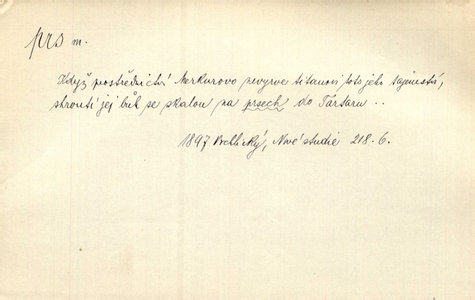 prs m.
Když prostřednictví Merkurovo nevyrve titanovi toto jeho tajemstá,
shroutí jej bůh se skalou na prsech do Tartaru ..
1897 Vrchlický, Nové studie 218. 6.